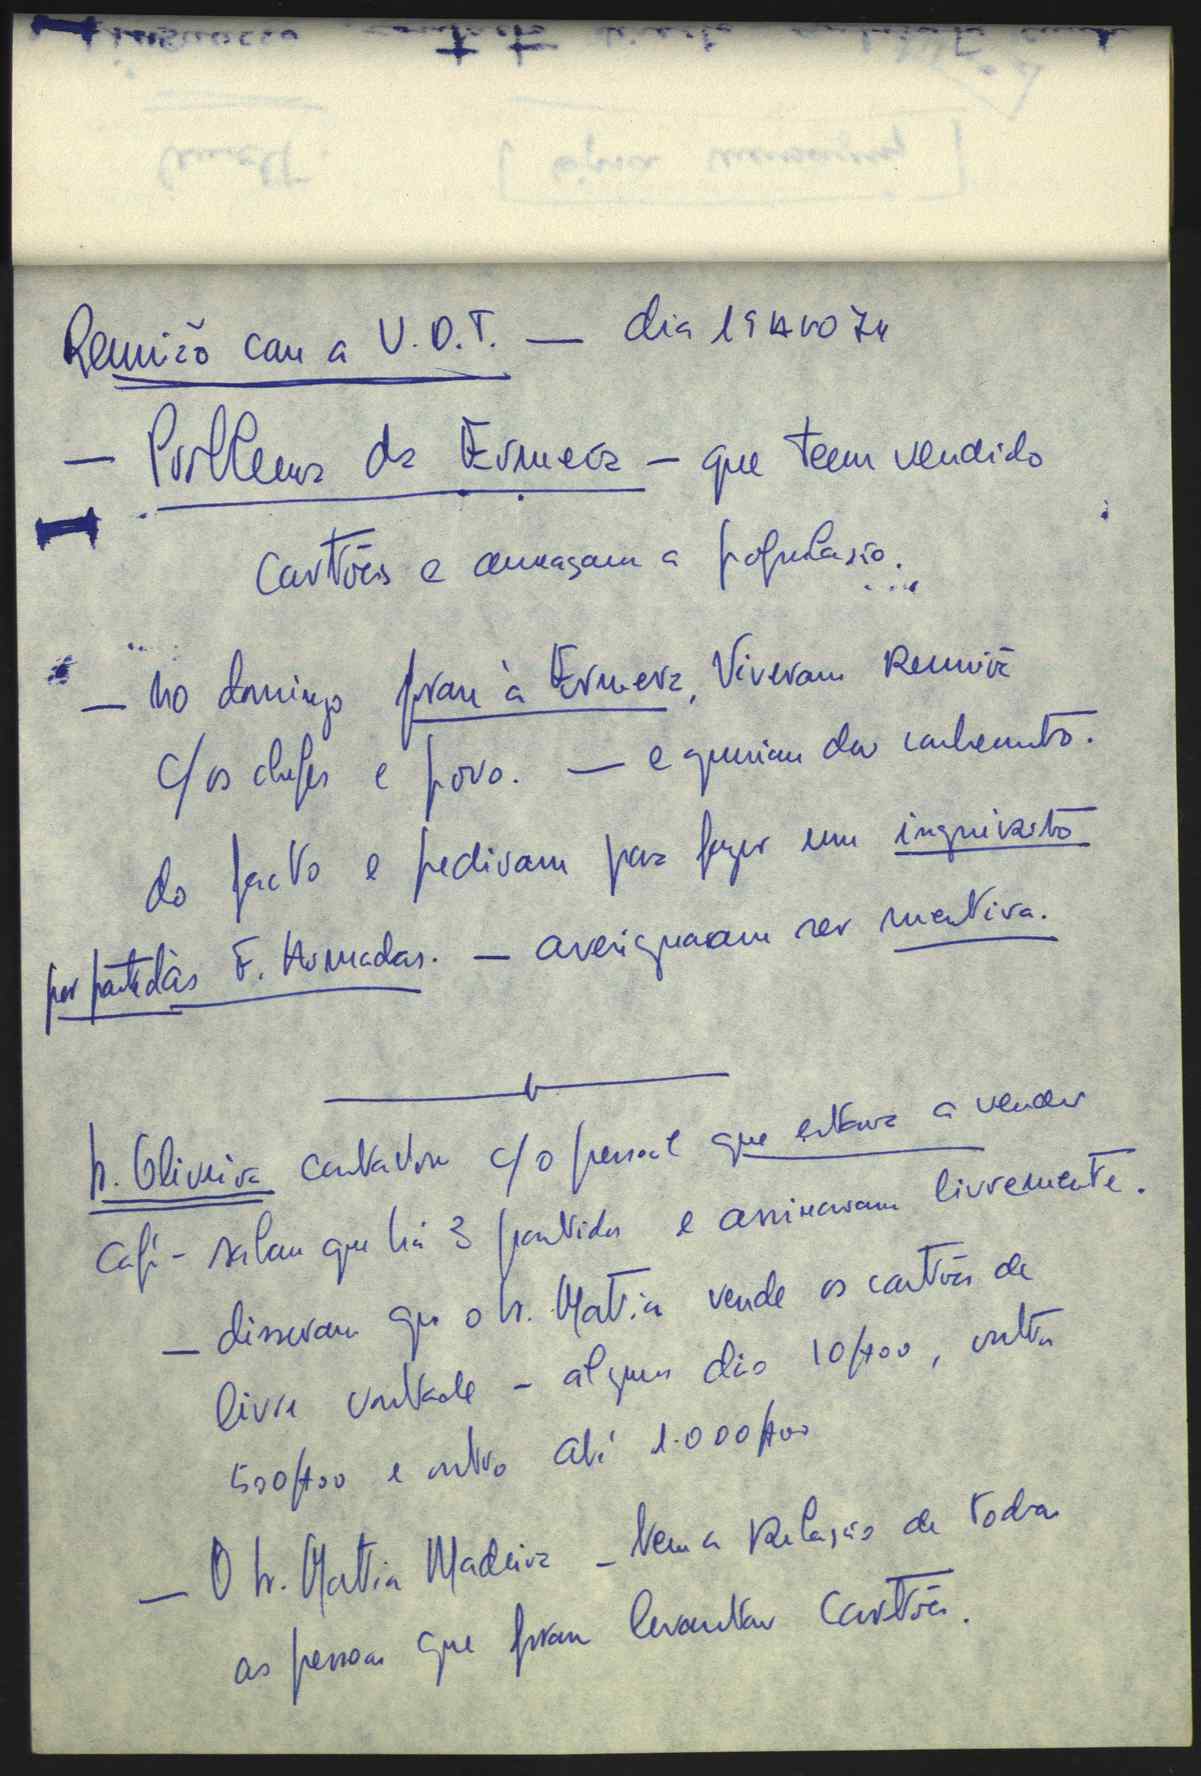 Reunião com a U.D.T. — dia 19 AGO 74
— Problema da Ermera — que teem vendido
cartões e ameaçam a população.
— No domingo foram à Ermera, tiveram Reunião
c/os chefes e povo. — e queriam dar conhecimto.
do facto e pediram para fazer um inquérito
por parte das F. Armadas. — averiguaram ser mentira.
Sr. Oliveira contactou c/o pessoal que estava a vender
café - sabem que há 3 partidos e assinaram livremente.
— disseram que o Sr. Matias vende os cartões de
livre vontade - alguns dão 10$00, outros
500$00 e outro até 1.000$00
— O Sr. Matias Madeira — tem a Relação de todas
as pessoas que foram levantar cartões.